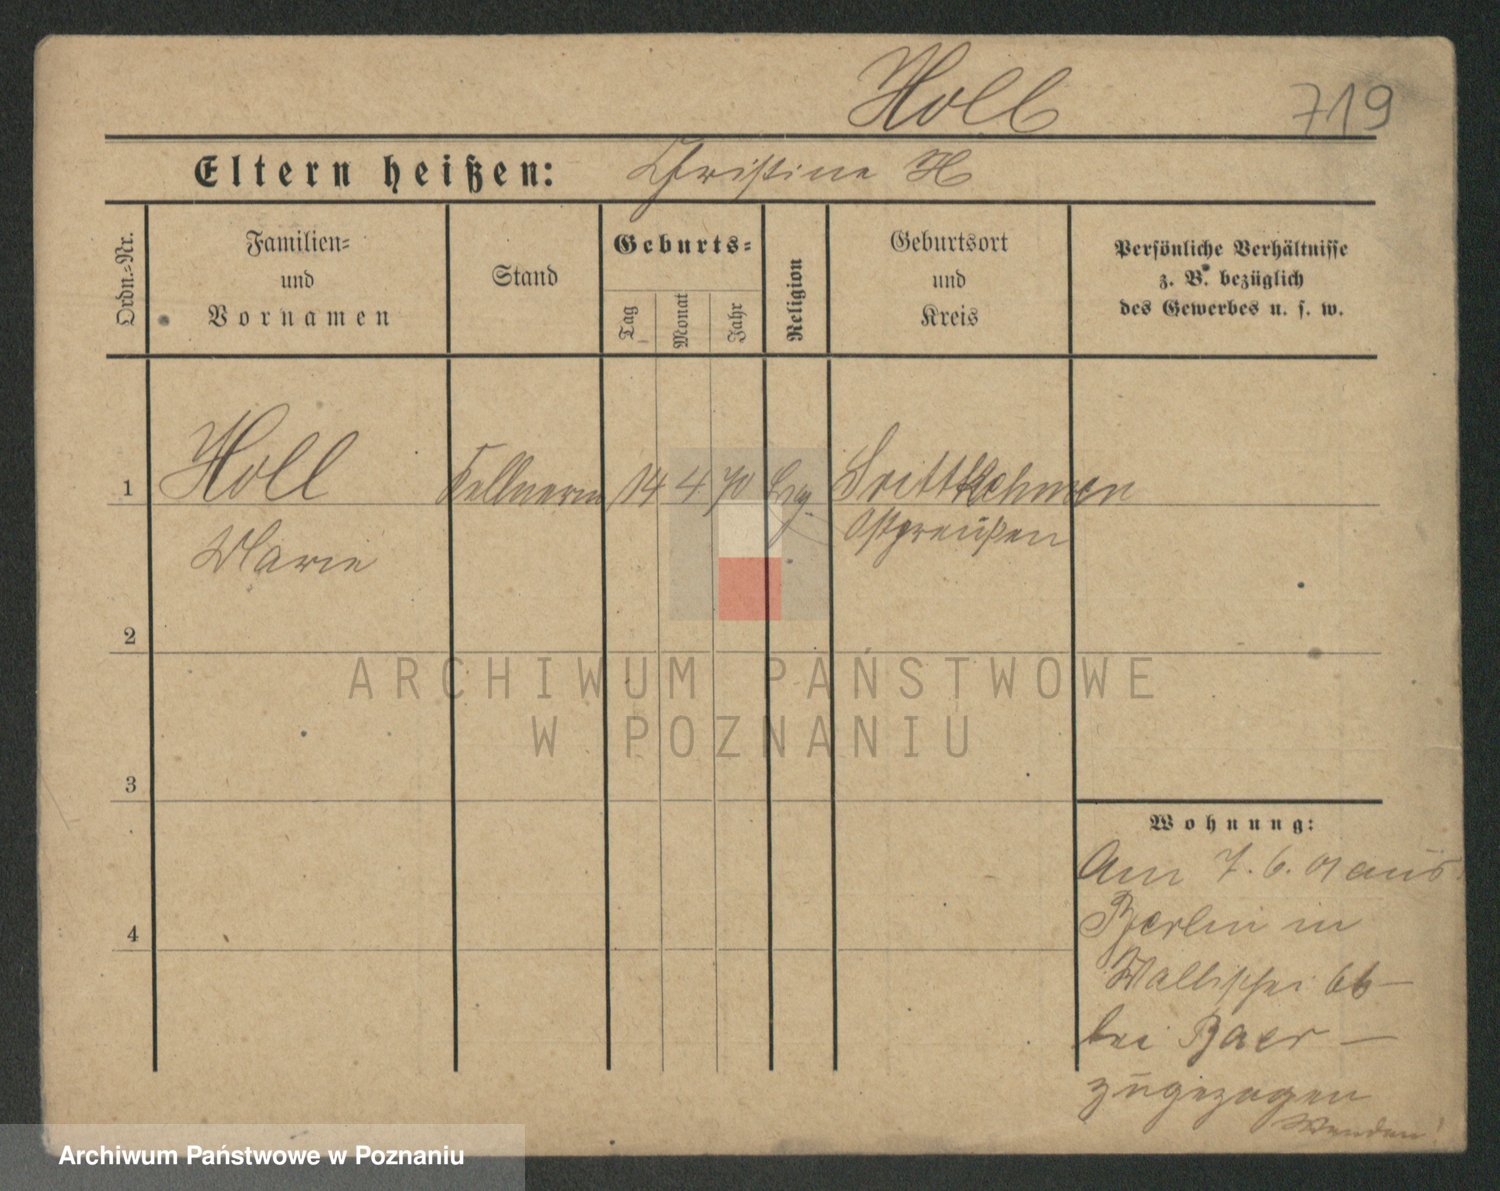 Holl 719
Eltern heißen: Christine H
Ordn.=Nr.
Familien=
und
Vornamen
Stand
Geburts=
Tag
Monat
Jahr
Religion
Geburtsort
und
Kreis
Persönliche Verhältnisse
z. B. bezüglich
des Gewerbes u. s. w.
1 Holl Kellnerin 14 4 70 Evg. Trittkehmen
Marie Ostpreußen
2
3
4
Wohnung:
Am 7.6.01 aus
Berlin in
Wallischei 66
bei Baer –
zugezogen
Wenden!
ARCHIWUM PAŃSTWOWE
W POZNANIU
Archiwum Państwowe w Poznaniu